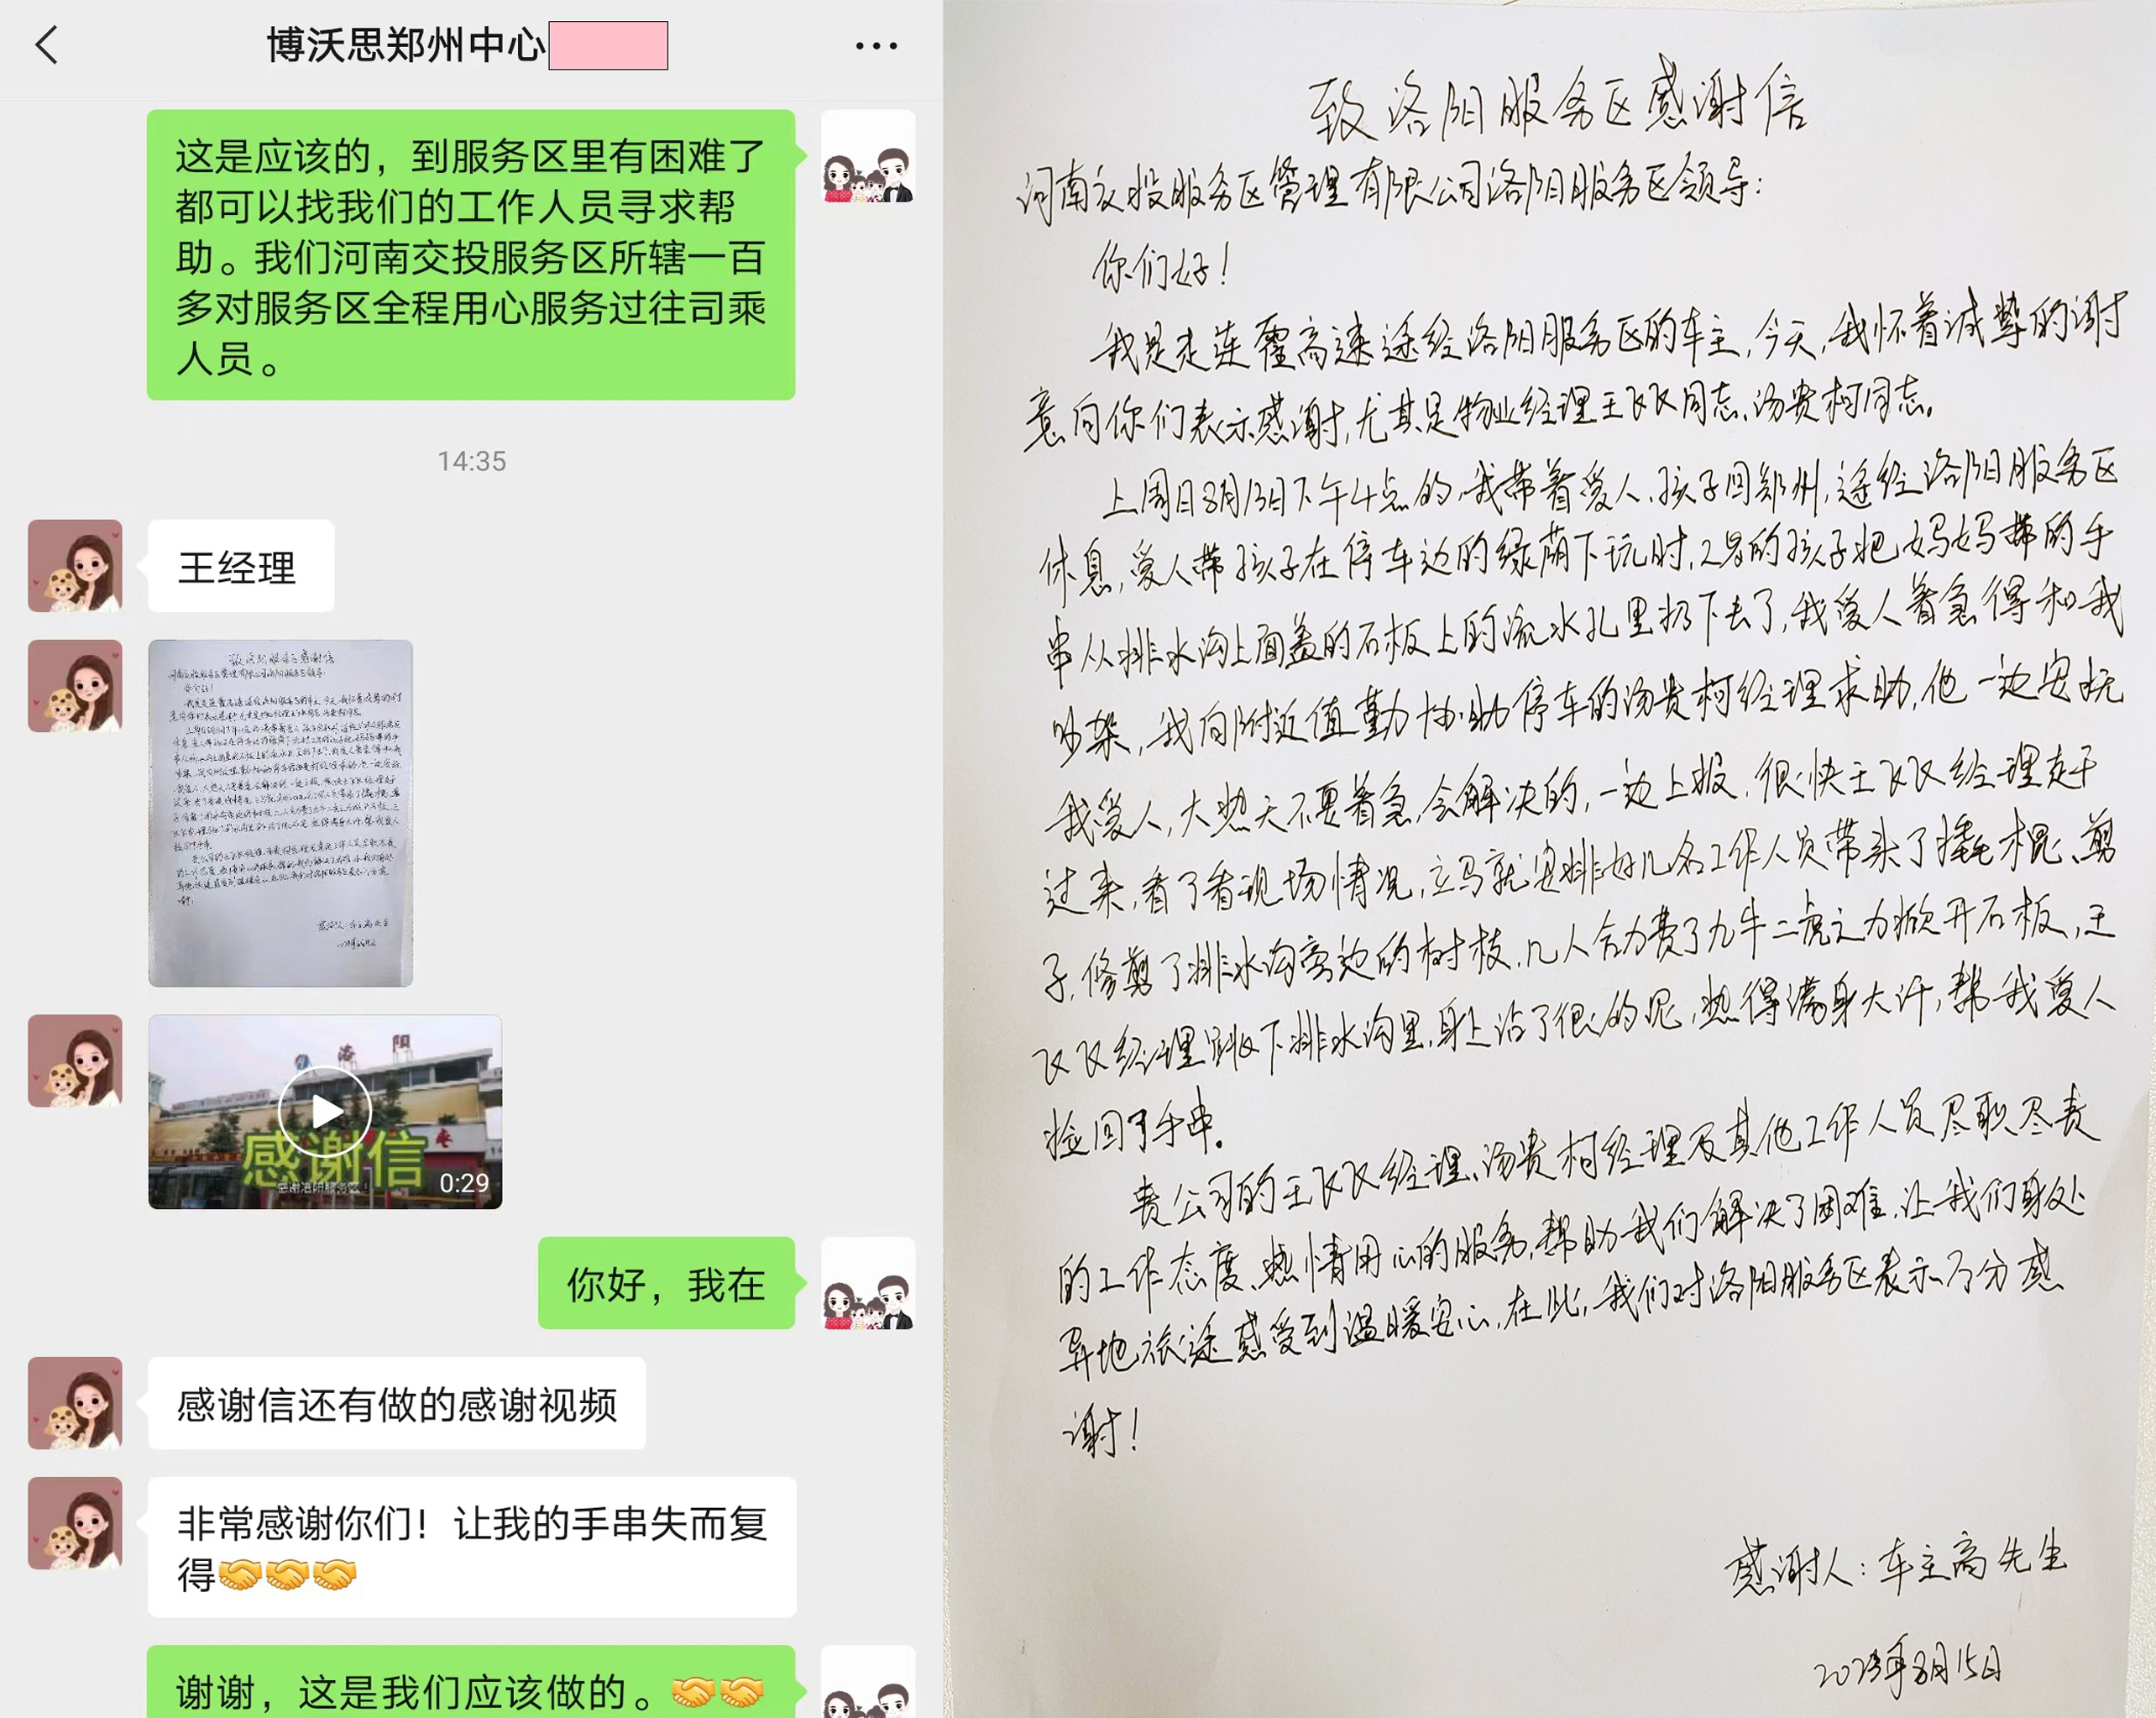 博沃思郑州中心
这是应该的，到服务区里有困难了
都可以找我们的工作人员寻求帮
助。我们河南交投服务区所辖一百
多对服务区全程用心服务过往司乘
人员。
14:35
王经理
致洛阳服务区感谢信
洛阳
感谢信
感谢洛阳服务区！
0:29
你好，我在
感谢信还有做的感谢视频
非常感谢你们！让我的手串失而复
得🤝🤝🤝
谢谢，这是我们应该做的。🤝🤝
致洛阳服务区感谢信
河南交投服务区管理有限公司洛阳服务区领导：
你们好！
我是走连霍高速途经洛阳服务区的车主，今天，我怀着诚挚的谢
意向你们表示感谢，尤其是物业经理王双双同志、汤贵柯同志。
上周日8月13日下午4点的，我带着爱人、孩子回郑州，途经洛阳服务区
休息，爱人带孩子在停车边的绿荫下玩时，2岁的孩子把妈妈带的手
串从排水沟上面盖的石板上的流水孔里扔下去了，我爱人着急得和我
吵架，我向附近值勤协助停车的汤贵柯经理求助，他一边安抚
我爱人，大热天不要着急，会解决的，一边上报，很快王双双经理走于
过来，看了看现场情况，立马就安排好几名工作人员带来了撬棍、剪
子，修剪了排水沟旁边的树枝，几人合力费了九牛二虎之力掀开石板，王
双双经理跳下排水沟里，身上沾了很多的泥，热得满身大汗，帮我爱人
捡回了手串。
贵公司的王双双经理、汤贵柯经理及其他工作人员尽职尽责
的工作态度、热情用心的服务，帮助我们解决了困难，让我们身处
异地旅途感受到温暖安心，在此，我们对洛阳服务区表示万分感
谢！
感谢人：车主高先生
2023年8月15日